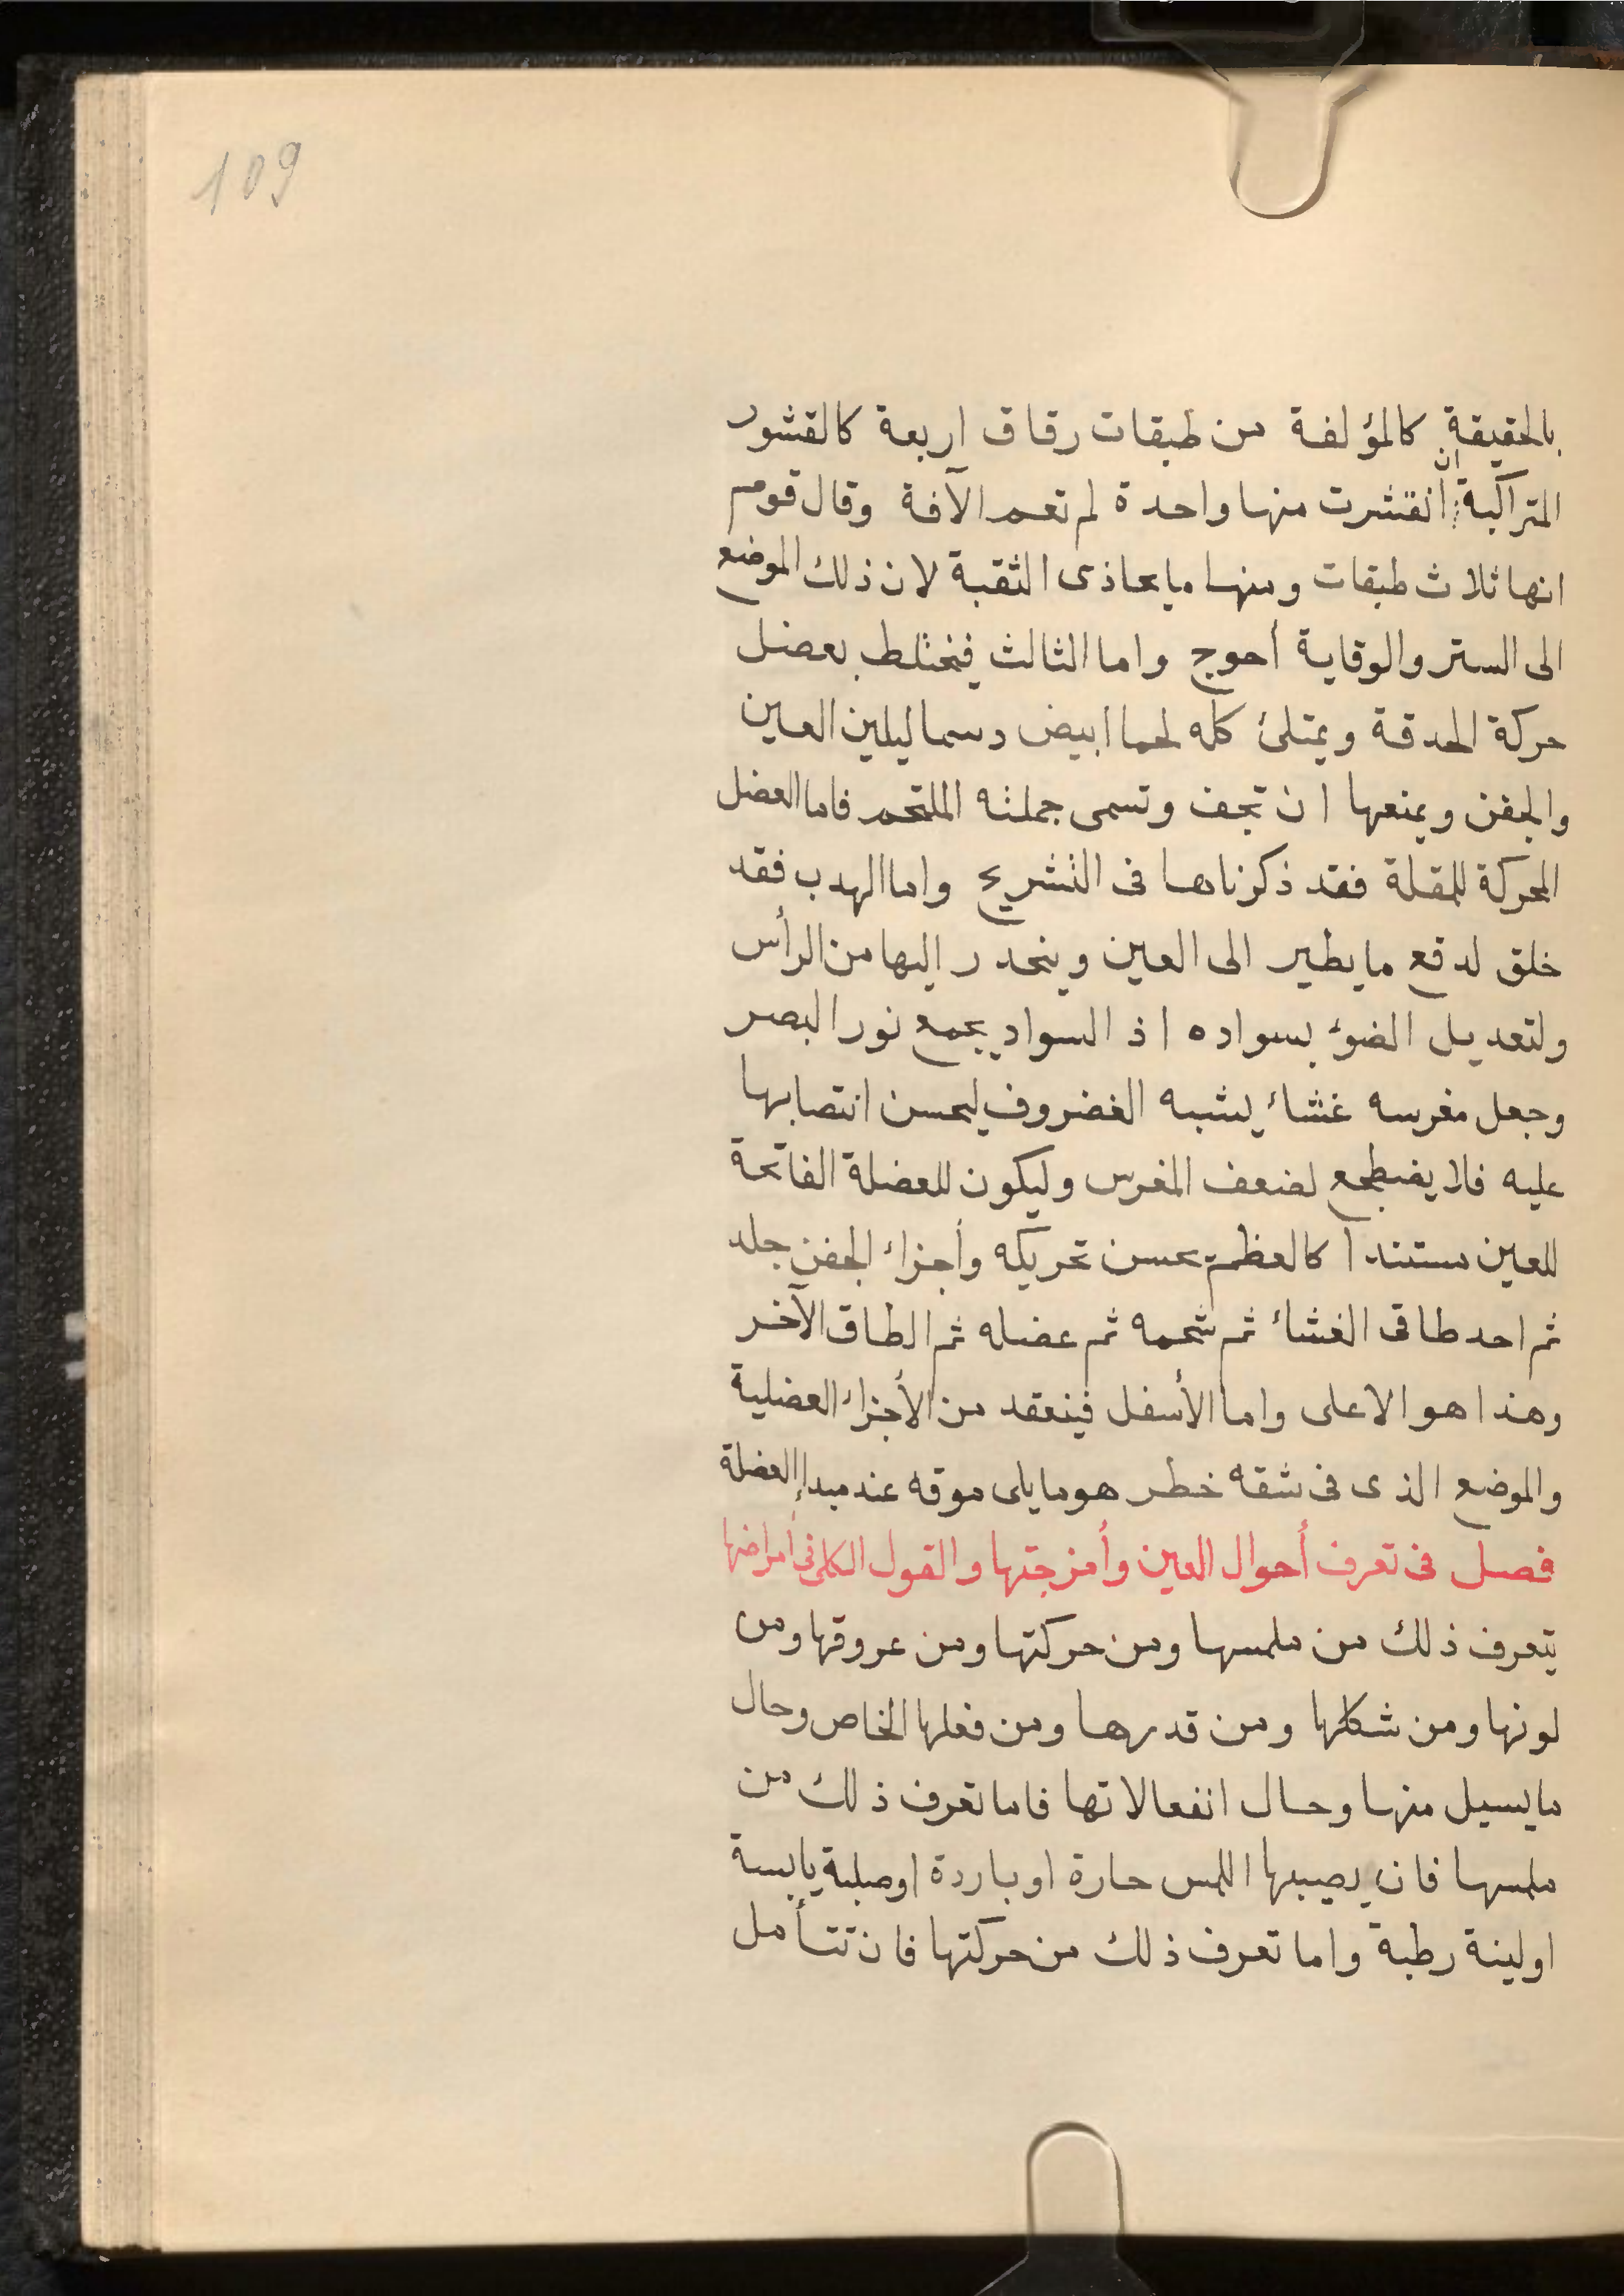 109
بالحقيقة كالمؤلفة من طبقات رقاق اربعة كالقشور
المتراكبة ان انقشرت منها واحدة لم تعم الآفة وقال قوم
انها ثلاث طبقات ومنها ما يحاذى الثقبة لان ذلك الموضع
الى الستر والوقاية أحوج واما الثالث فيختلط بعضل
حركة الحدقة ويمتلئ كله لحما ابيض دسما ليلين العين
والجفن ويمنعها ان تجف وتسمى جملته الملتحم فاما العضل
المحركة للمقلة فقد ذكرناها فى التشريح واما الهدب فقد
خلق لدفع ما يطير الى العين وينحدر اليها من الرأس
ولتعديل الضوء بسواده اذ السواد يجمع نور البصر
وجعل مغرسه غشاء يشبه الغضروف ليحسن انتصابها
عليه فلا يضطجع لضعف المغرس وليكون للعضلة الفاتحة
للعين مستندا كالعظم يحسن تحريكه وأجزاء الجفن جلد
ثم احد طاقى الغشاء ثم شحمه ثم عضله ثم الطاق الآخر
وهذا هو الاعلى واما الأسفل فينعقد من الأجزاء العضلية
والموضع الذى فى شقه خطر هو ما يلى موقه عند مبدإ العضلة
فصل فى تعرف أحوال العين وأمزجتها والقول الكلى فى أمراضها
يتعرف ذلك من ملمسها ومن حركتها ومن عروقها ومن
لونها ومن شكلها ومن قدرها ومن فعلها الخاص وحال
ما يسيل منها وحال انفعالاتها فاما تعرف ذلك من
ملمسها فان يصيبها اللمس حارة او باردة او صلبة يابسة
او لينة رطبة واما تعرف ذلك من حركتها فان تتأمل